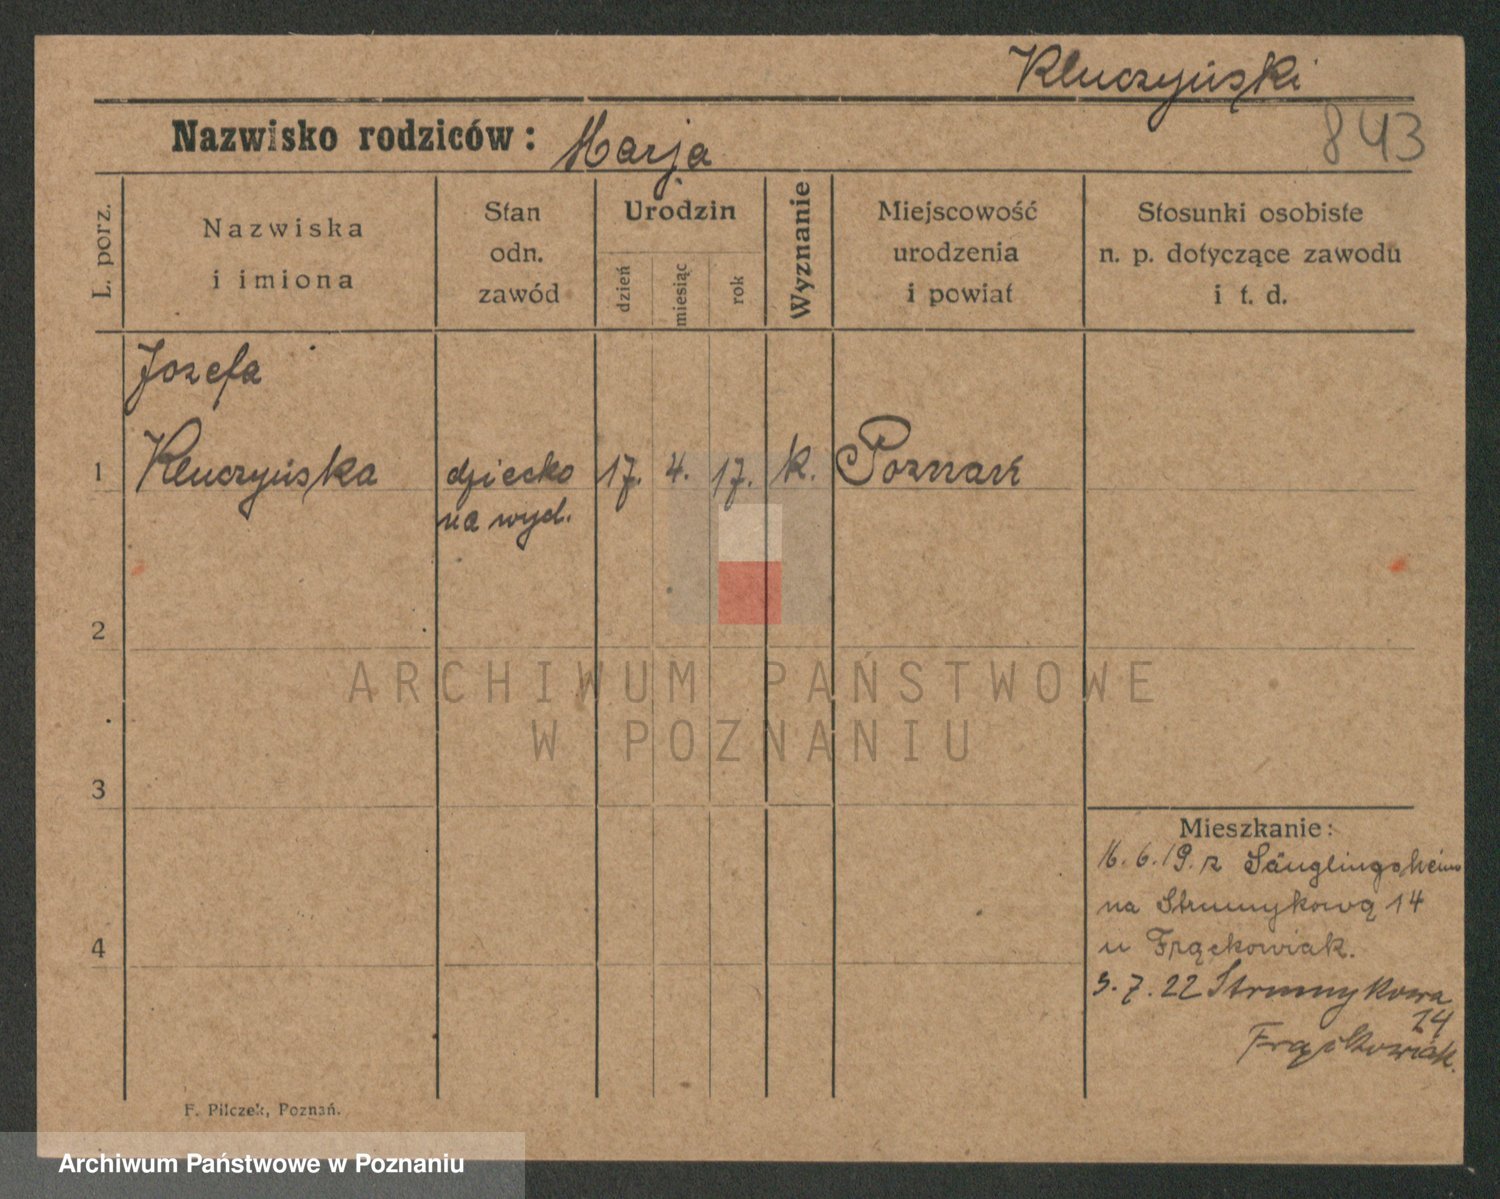 Kluczyński
843
Nazwisko rodziców: Marja
L. porz.
Nazwiska
i imiona
Stan
odn.
zawód
Urodzin
dzień
miesiąc
rok
Wyznanie
Miejscowość
urodzenia
i powiat
Stosunki osobiste
n. p. dotyczące zawodu
i t. d.
Jozefa
1 Kluczyńska dziecko 17. 4. 17. k. Poznań
na wyd.
2
ARCHIWUM PAŃSTWOWE
W POZNANIU
3
Mieszkanie:
16.6.19. z Säuglingsheim
na Strumykową 14
4
u Frąckowiak.
3.7.22 Strumykowa
14
Frąckowiak.
F. Pilczek, Poznań.
Archiwum Państwowe w Poznaniu